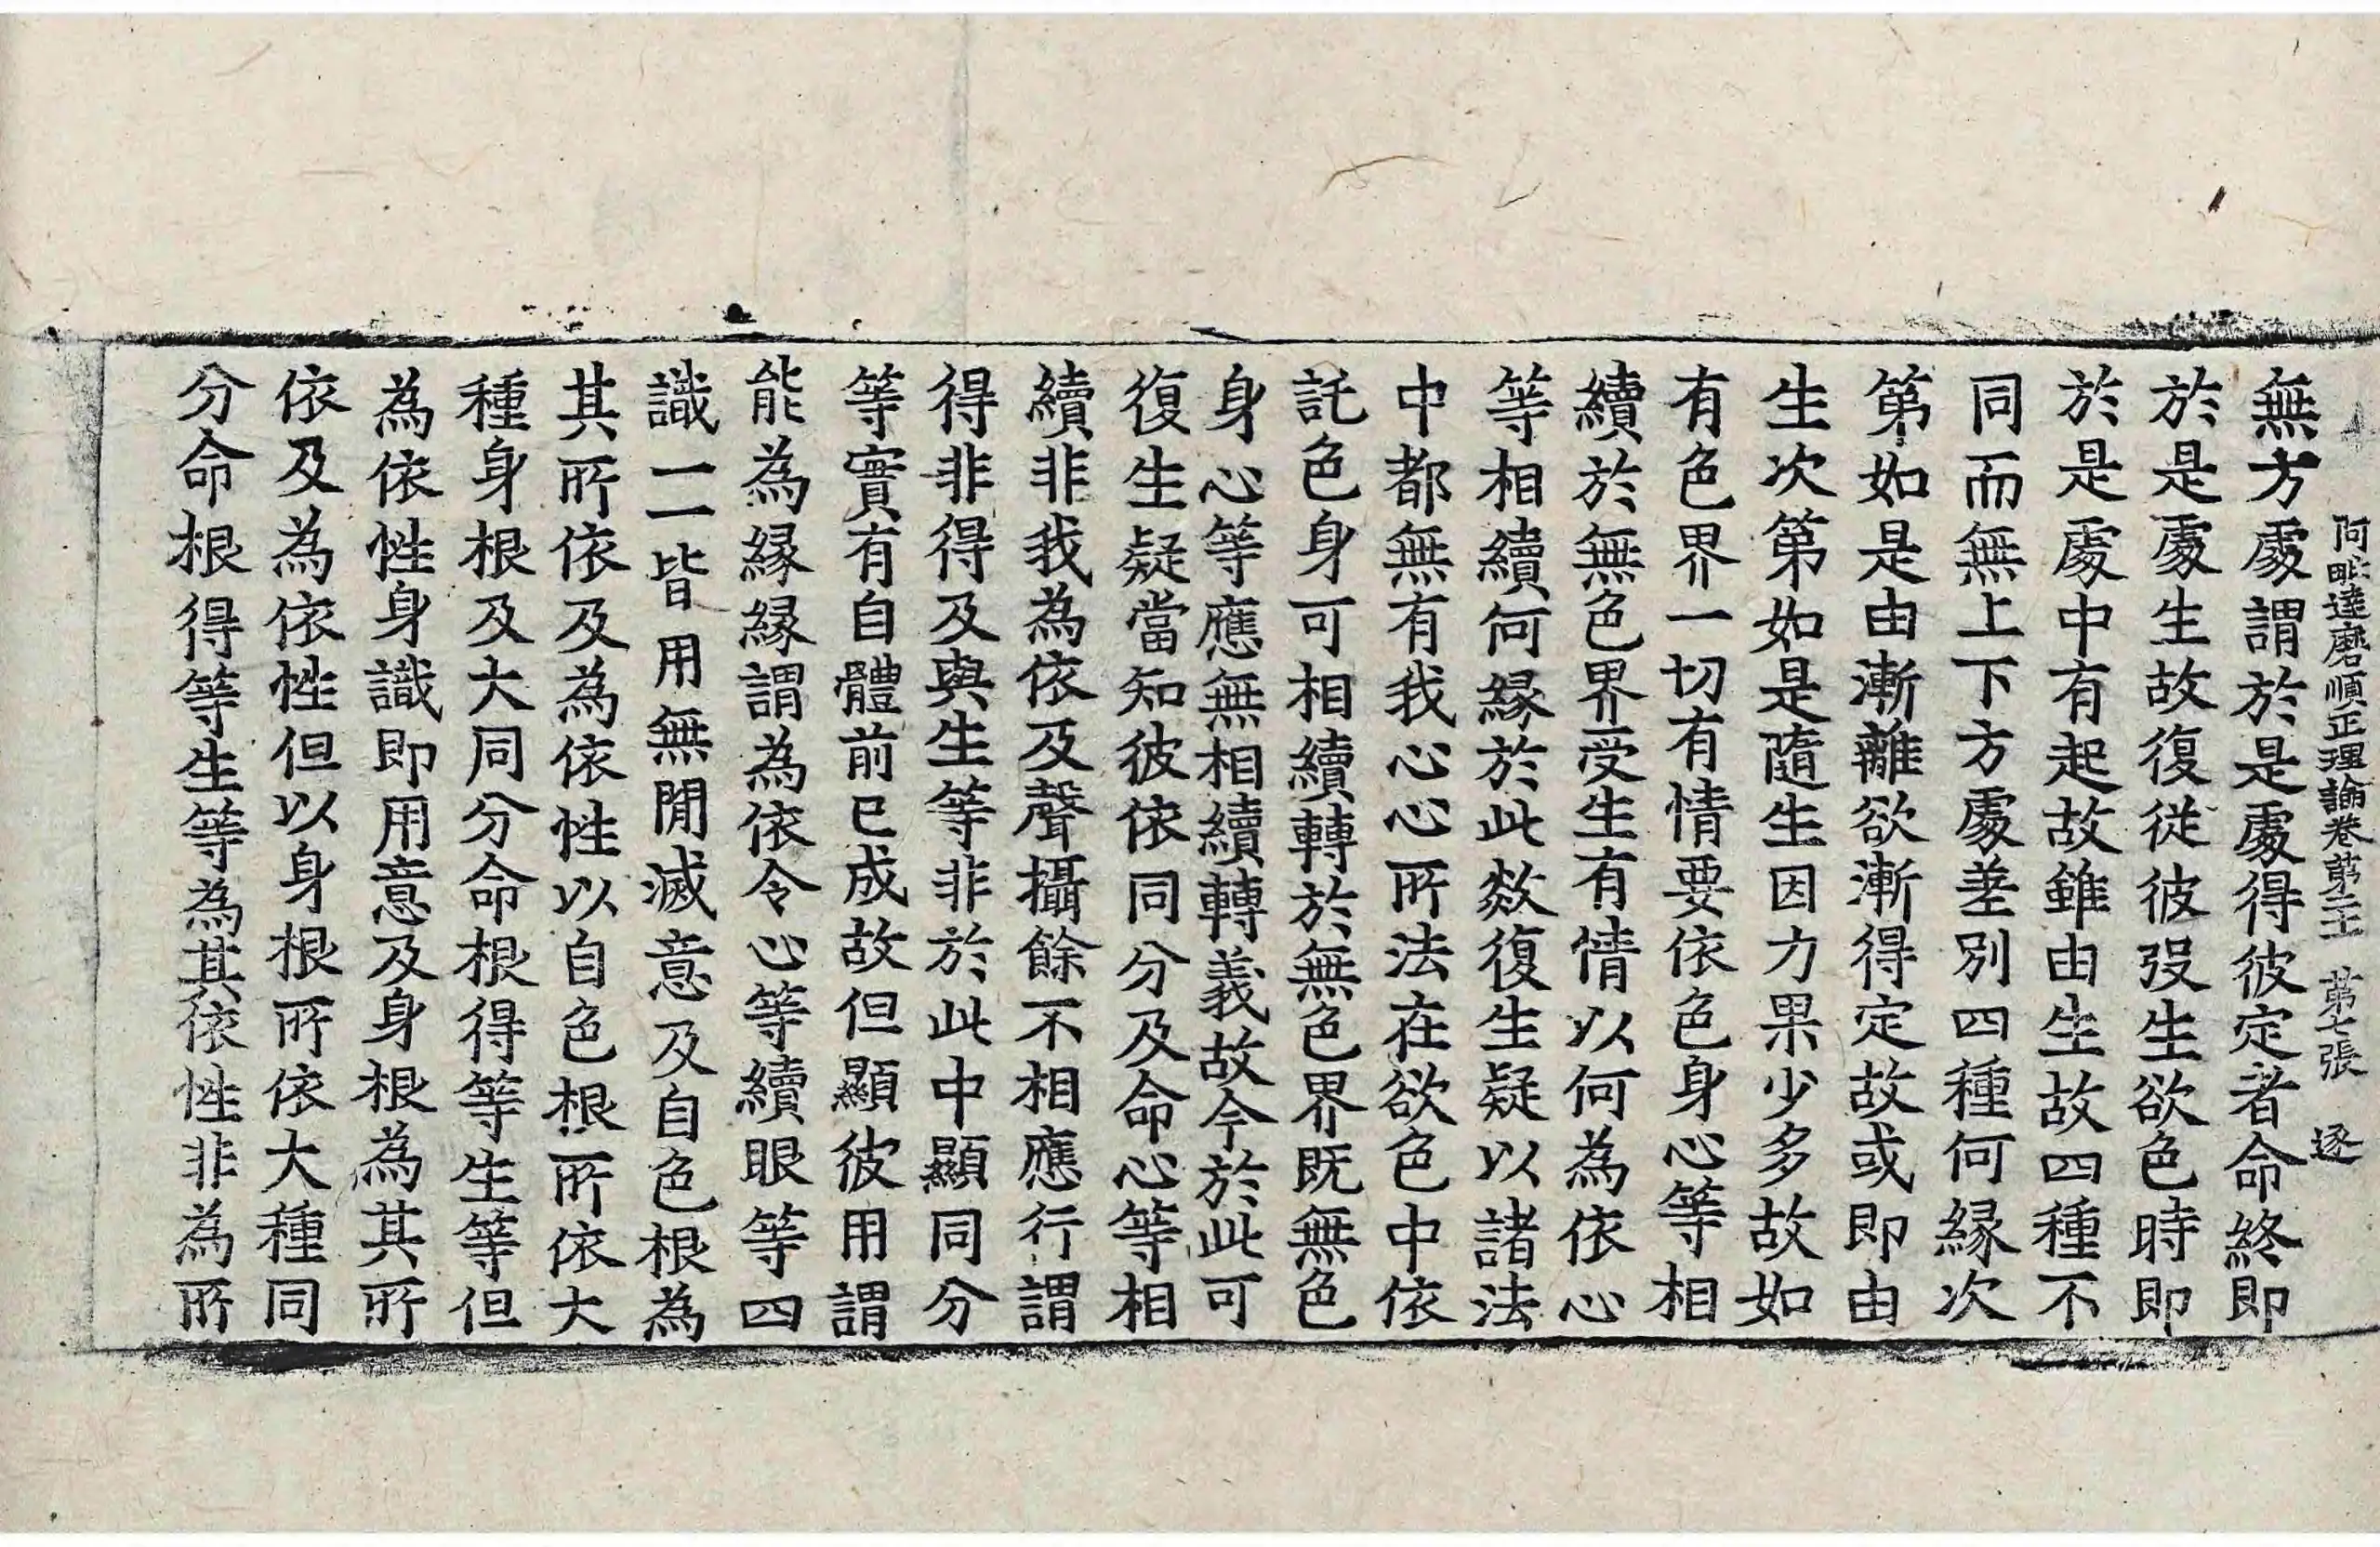 阿毗達磨順正理論卷第二十一 第七張 逐
無方處謂於是處得彼定者命終即
於是處生故復從彼歿生欲色時即
於是處中有起故雖由生故四種不
同而無上下方處差別四種何緣次
第如是由漸離欲漸得定故或即由
生次第如是隨生因力果少多故如
有色界一切有情要依色身心等相
續於無色界受生有情以何為依心
等相續何緣於此欻復生疑以諸法
中都無有我心心所法在欲色中依
託色身可相續轉於無色界既無色
身心等應無相續轉義故今於此可
復生疑當知彼依同分及命心等相
續非我為依及聲攝餘不相應行謂
得非得及與生等非於此中顯同分
等實有自體前已成故但顯彼用謂
能為緣緣謂為依令心等續眼等四
識一一皆用無間滅意及自色根為
其所依及為依性以自色根所依大
種身根及大同分命根得等生等但
為依性身識即用意及身根為其所
依及為依性但以身根所依大種同
分命根得等生等為其依性非為所